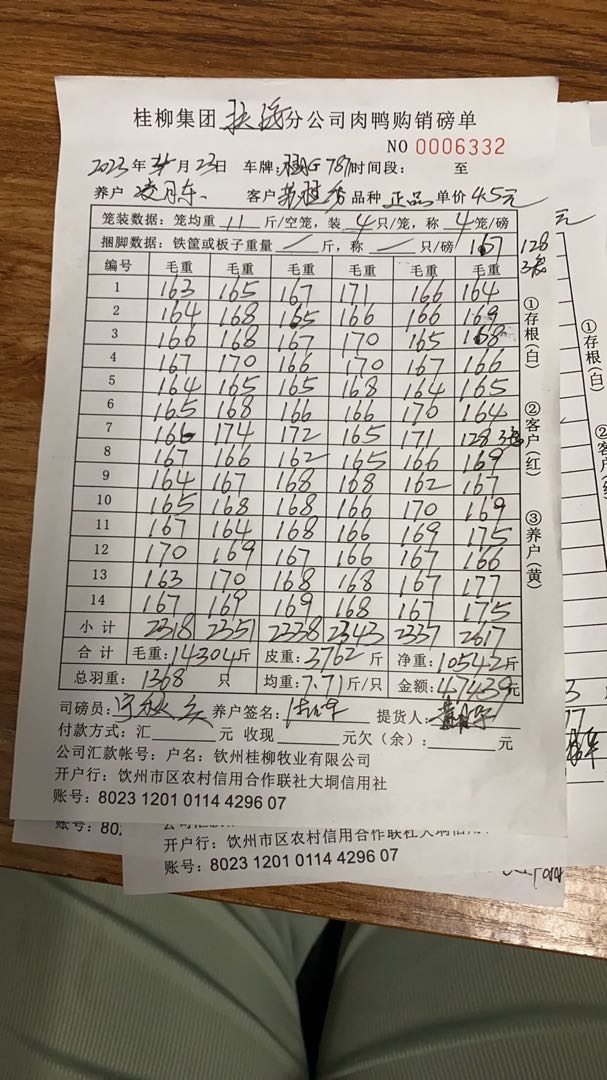 桂柳集团 分公司肉鸭购销磅单
NO 0006332
2023年 月23日 车牌: G 787 时间段: 至
养户 客户 品种 正品 单价 4.5元
笼装数据: 笼均重 11 斤/空笼, 装 4 只/笼, 称 4 笼/磅
捆脚数据: 铁筐或板子重量 / 斤, 称 / 只/磅 167 128
编号 毛重 毛重 毛重 毛重 毛重 毛重
1 163 165 167 171 166 164
2 164 168 165 166 166 169
3 166 168 167 170 165 168
4 167 170 166 170 167 166
5 164 165 165 168 164 165
6 165 168 166 166 170 164
7 166 174 172 165 171 128
8 167 166 162 165 166 169
9 164 167 168 168 162 167
10 165 168 168 166 170 169
11 167 164 168 166 169 175
12 170 169 167 166 167 166
13 163 170 168 168 167 177
14 167 169 169 168 167 175
小计 2318 2351 2338 2343 2337 2617
合计 毛重: 14304斤 皮重: 3762斤 净重: 10542斤
总羽重: 1368 只 均重: 7.71斤/只 金额: 47439元
司磅员: 养户签名: 提货人:
付款方式: 汇 元 收现 元欠(余): 元
公司汇款帐号: 户名: 钦州桂柳牧业有限公司
开户行: 钦州市区农村信用合作联社大垌信用社
账号: 8023 1201 0114 4296 07
①存根(白) ②客户(红) ③养户(黄)
元
①存根(白)
②客户(红
77
账号: 802
开户行: 钦州市区农村信用合作联社大垌信用
账号: 8023 1201 0114 4296 07